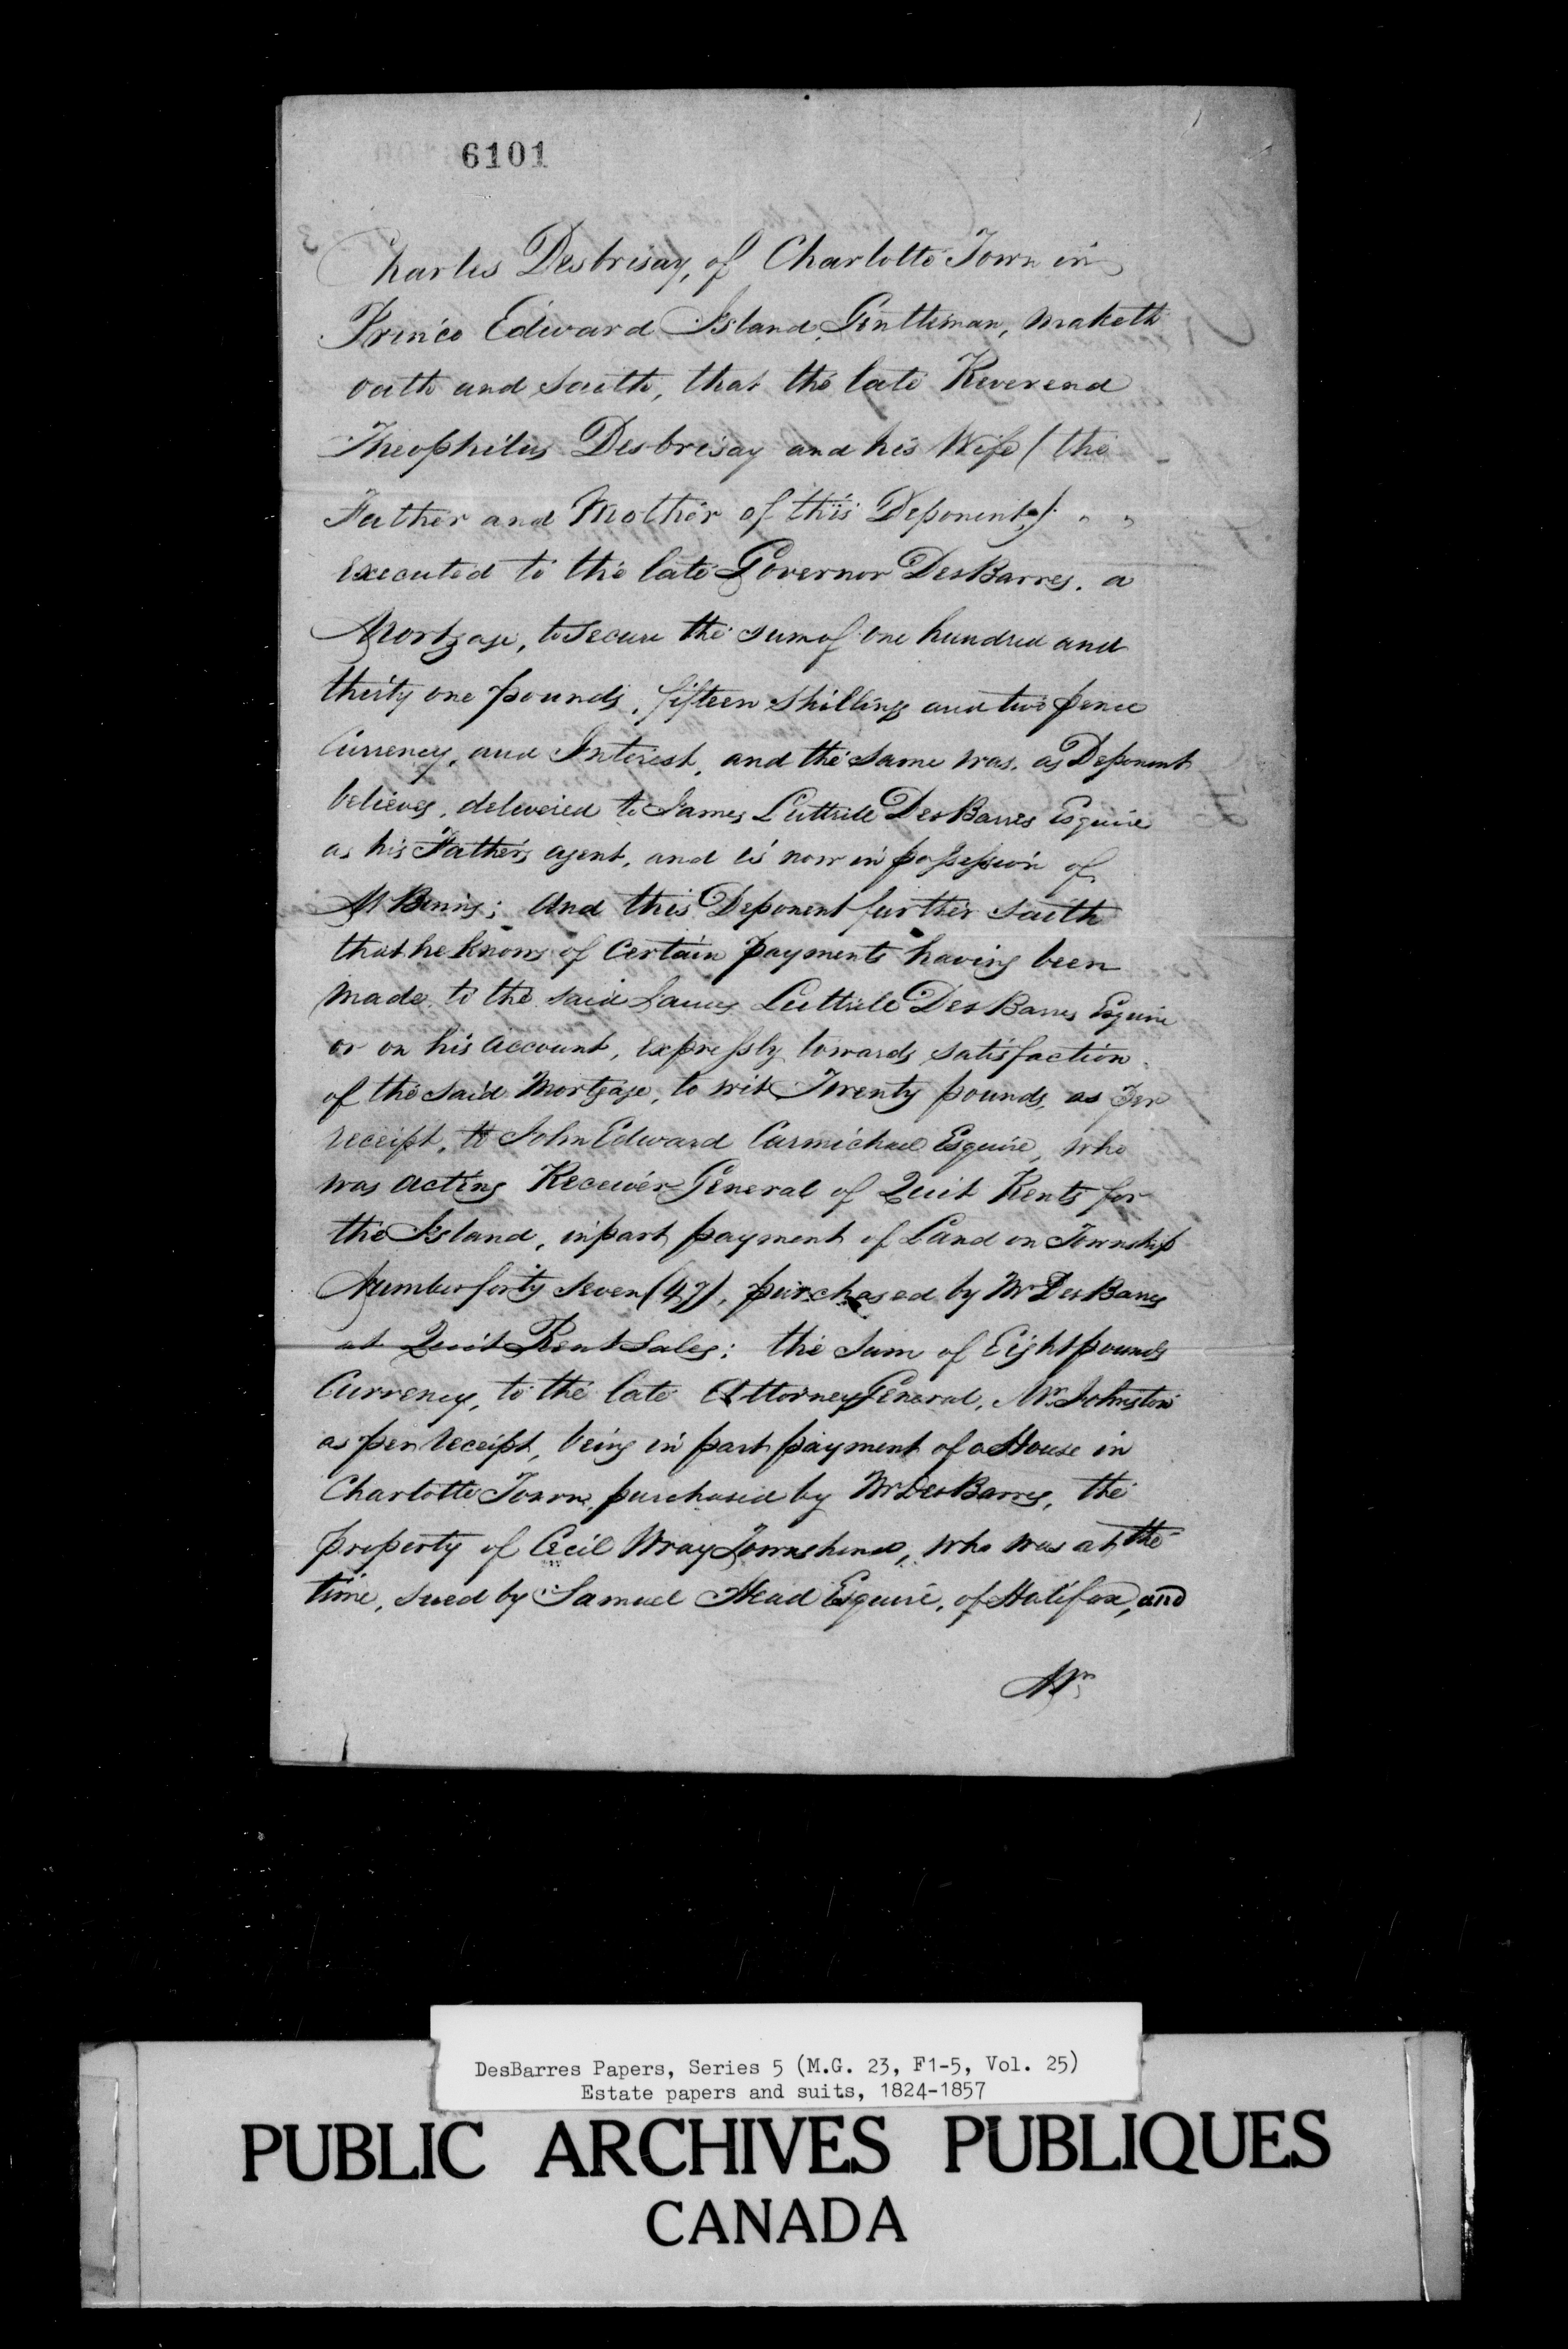 6101
Charles Desbrisay, of Charlotte Town in
Prince Edward Island, Gentleman, maketh
oath and saith, that the late Reverend
Theophilus Desbrisay and his Wife (the
Father and Mother of this Deponent,) " "
executed to the late Governor DesBarres, a
Mortgage, to secure the sum of one hundred and
thirty one pounds, fifteen shillings and two pence
Currency, and Interest, and the same was, as Deponent
believes, delivered to James Luttrele DesBarres Esquire
as his Father's agent, and is now in possession of
Mr Binns; And this Deponent further saith
that he knows of Certain payments having been
made to the said James Luttrele DesBarres Esquire
or on his account, expressly towards satisfaction
of the said Mortgage, to wit, Twenty pounds, as per
receipt, to John Edward Carmichael Esquire, who
was acting Receiver General of Quit Rents for
the Island, in part payment of Land on Township
Number forty seven (47), purchased by Mr DesBarres
at Quit Rent Sales; the sum of Eight pounds
Currency, to the late Attorney General, Mr. Johnston
as per receipt, being in part payment of a House in
Charlotte Town, purchased by Mr DesBarres, the
property of Cecil Wray Townshend, who was at the
time, sued by Samuel Head Esquire, of Halifax, and
Mr
DesBarres Papers, Series 5 (M.G. 23, F1-5, Vol. 25)
Estate papers and suits, 1824-1857
PUBLIC ARCHIVES PUBLIQUES
CANADA